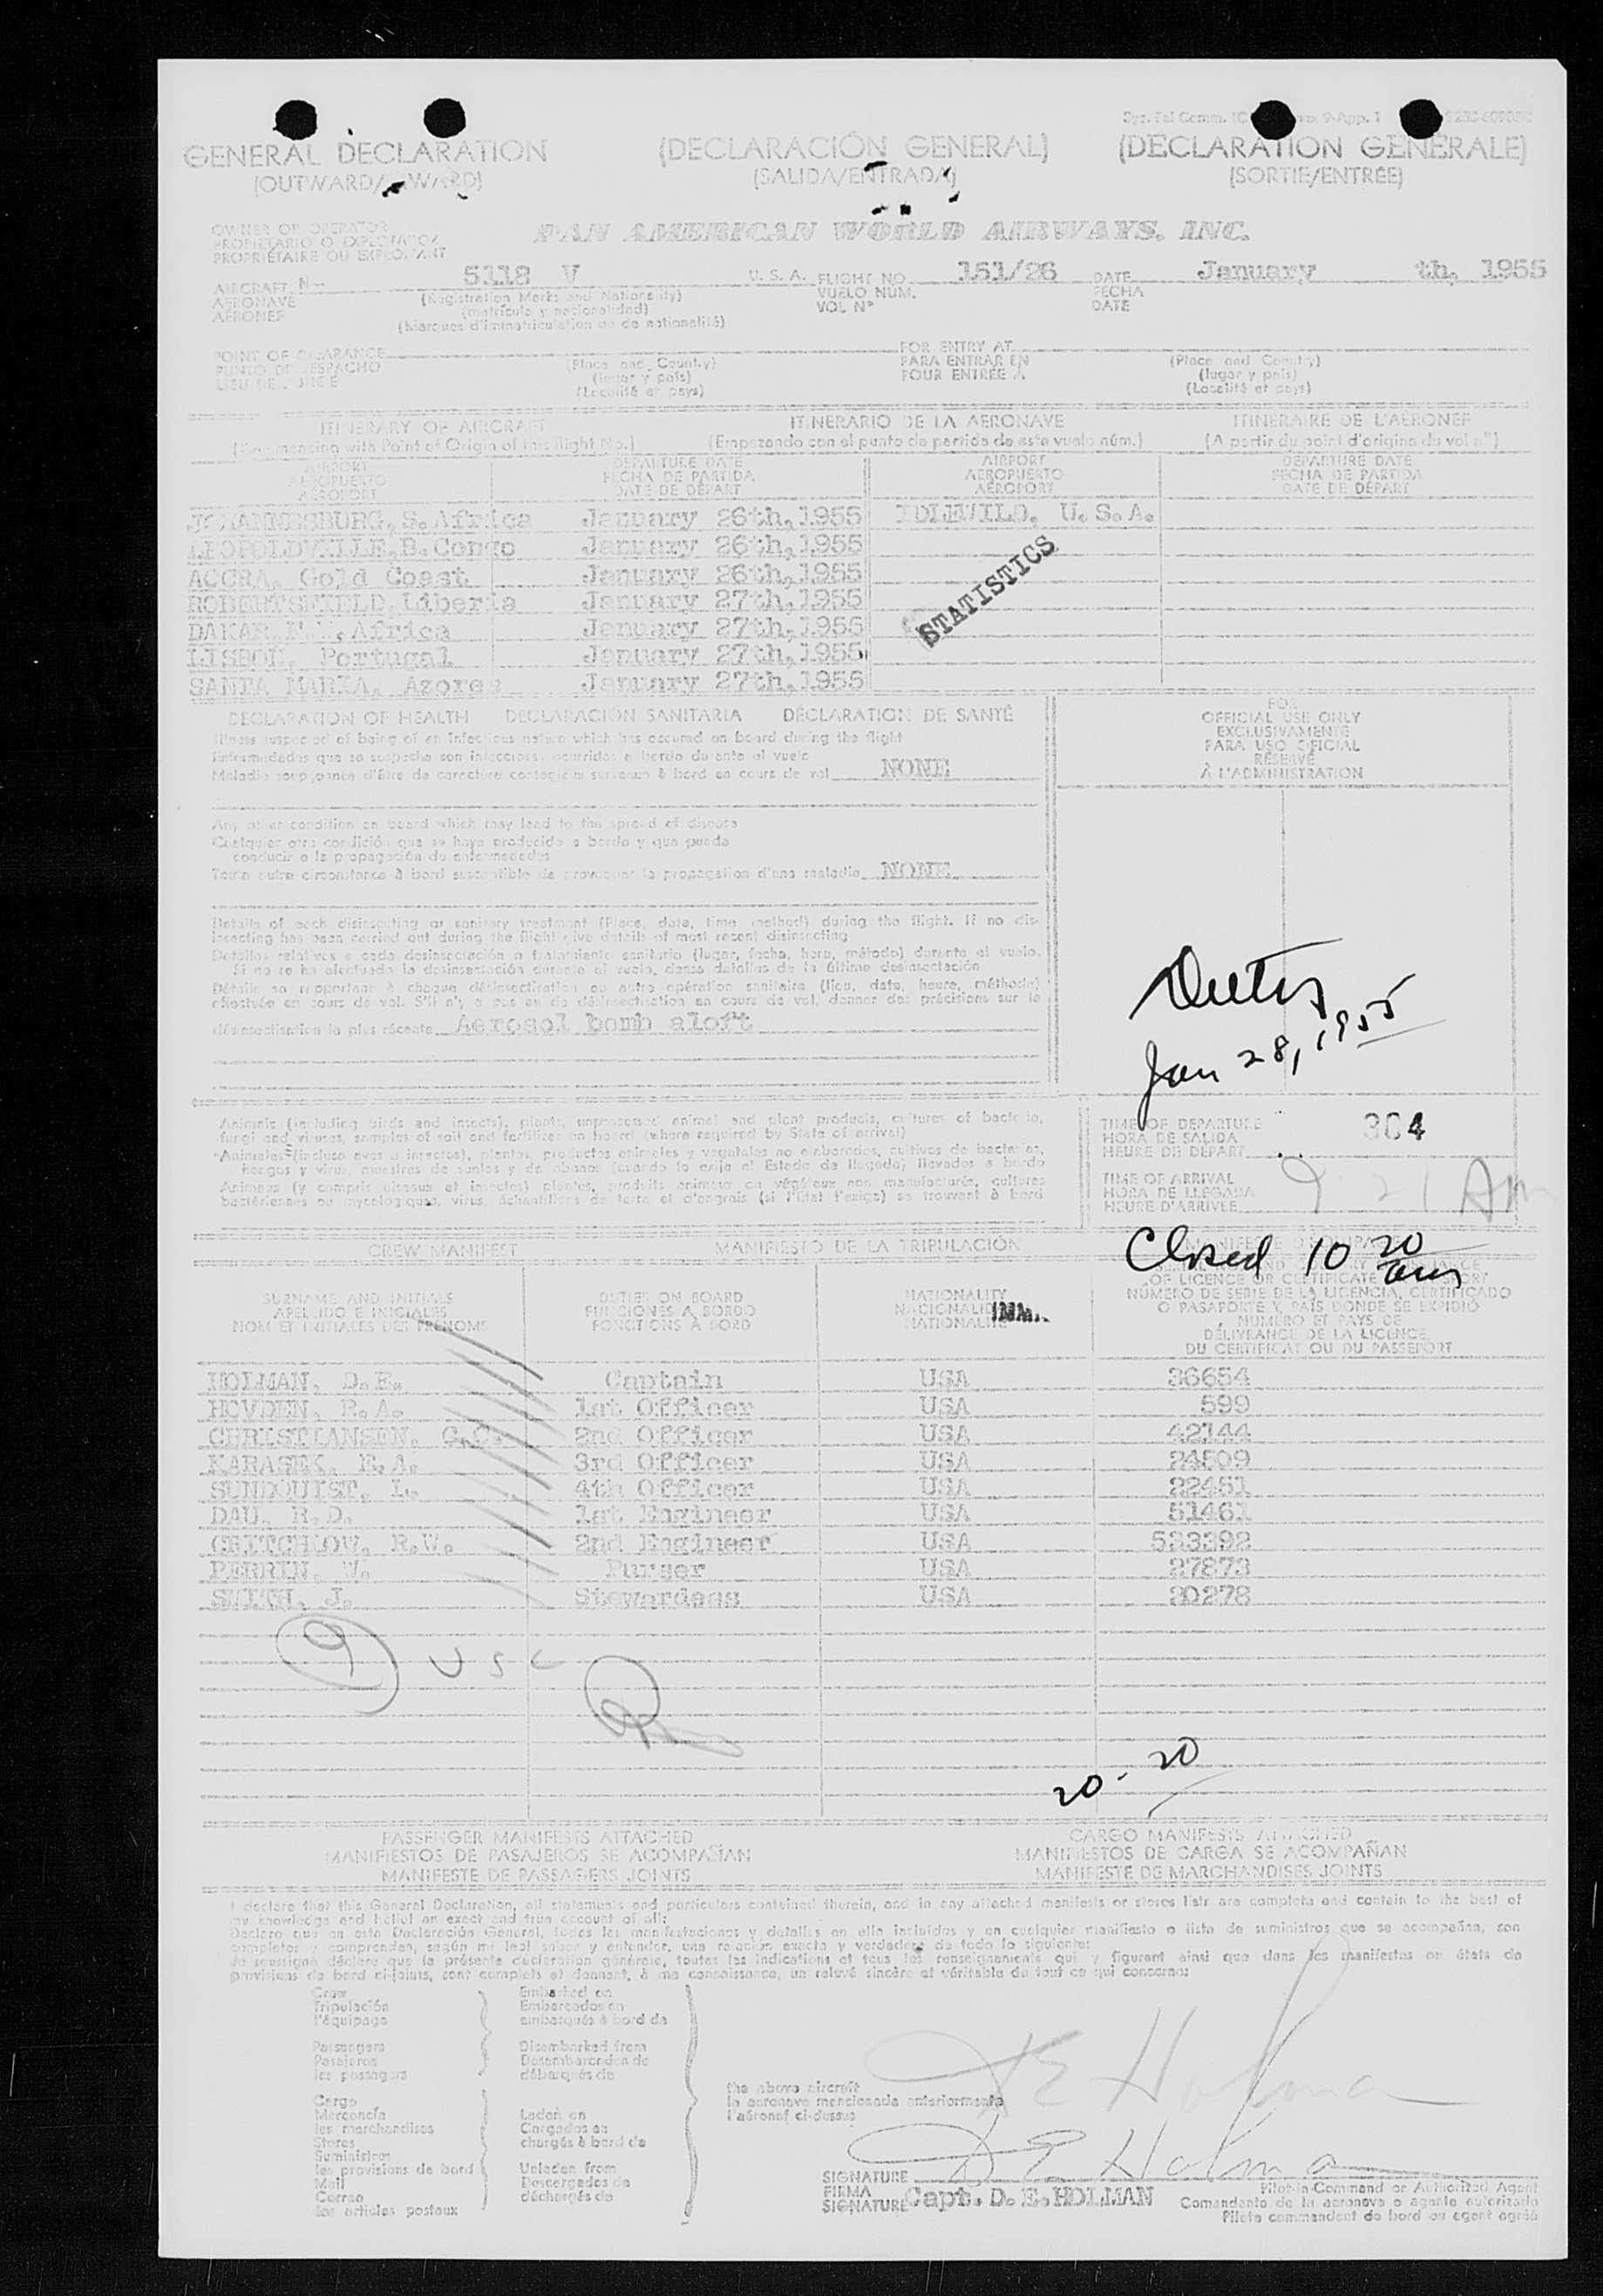 GENERAL DECLARATION
(OUTWARD/
(DECLARACIÓN GENERAL)
(SALIDA/ENTRADA)
(DECLARATION GÉNÉRALE)
(SORTIE/ENTRÉE)
OWNER OR OPERATOR
PROPIETARIO O EXPLOTADOR
PROPRIÉTAIRE OU EXPLOITANT
PAN AMERICAN WORLD AIRWAYS, INC.
AIRCRAFT N- 5118 V U. S. A.
AERONAVE
AÉRONEF
(Registration Marks and Nationality)
(matrícula y nacionalidad)
(Marques d'immatriculation ou de nationalité)
FLIGHT NO. 151/26
VUELO NÚM.
VOL Nº
DATE January th, 1955
FECHA
DATE
POINT OF CLEARANCE
PUNTO DE DESPACHO
(Place and Country)
(lugar y país)
(Localité et pays)
FOR ENTRY AT
PARA ENTRAR EN
POUR ENTRÉE À
(Place and Country)
(lugar y país)
(Localité et pays)
ITINERARY OF AIRCRAFT
(Commencing with Point of Origin of this Flight No.)
ITINERARIO DE LA AERONAVE
(Empezando con el punto de partida de este vuelo núm.)
ITINÉRAIRE DE L'AÉRONEF
(A partir du point d'origine du vol nº)
AIRPORT
AEROPUERTO
AÉROPORT
DEPARTURE DATE
FECHA DE PARTIDA
DATE DE DÉPART
AIRPORT
AEROPUERTO
AÉROPORT
DEPARTURE DATE
FECHA DE PARTIDA
DATE DE DÉPART
JOHANNESBURG, S. Africa January 26th, 1955 IDLEWILD, U. S. A.
LEOPOLDVILLE, B. Congo January 26th, 1955
ACCRA, Gold Coast January 26th, 1955
ROBERTSFIELD Liberia January 27th, 1955
DAKAR, F.W. Africa January 27th, 1955
LISBON, Portugal January 27th, 1955
SANTA MARIA, Azores January 27th, 1955
STATISTICS
DECLARATION OF HEALTH DECLARACIÓN SANITARIA DÉCLARATION DE SANTÉ
Illness suspected of being of an infectious nature which has occured on board during the flight
Enfermedades que se sospecha son infecciosas ocurridas a bordo durante el vuelo
Maladie soupçonnée d'être de caractère contagieux survenue à bord en cours de vol NONE
Any other condition on board which may lead to the spread of disease
Cualquier otra condición que se haya producido a bordo y que pueda
conducir a la propagación de enfermedades
Toute autre circonstance à bord susceptible de provoquer la propagation d'une maladie NONE
Details of each disinsecting or sanitary treatment (Place, date, time method) during the flight. If no dis-
insecting has been carried out during the flight give details of most recent disinsecting
Detalles relativos a cada desinsectación o tratamiento sanitario (lugar, fecha, hora, método) durante el vuelo.
Si no se ha efectuado la desinsectación durante el vuelo, dense detalles de la última desinsectación
Détails se rapportant à chaque désinsectisation ou autre opération sanitaire (lieu, date, heure, méthode)
effectuée en cours de vol. S'il n'y a pas eu de désinsectisation en cours de vol, donner des précisions sur la
désinsectisation la plus récente Aerosol bomb aloft
FOR
OFFICIAL USE ONLY
EXCLUSIVAMENTE
PARA USO OFICIAL
RÉSERVÉ
À L'ADMINISTRATION
Jan 28, 1955
Animals (including birds and insects), plants, unprocessed animal and plant products, cultures of bacteria,
fungi and viruses, samples of soil and fertilizer on board (where required by State of arrival)
Animales (incluso aves e insectos), plantas, productos animales y vegetales no elaborados, cultivos de bacterias,
hongos y virus, muestras de suelos y de abonos (cuando lo exija el Estado de llegada) llevados a bordo
Animaux (y compris oiseaux et insectes) plantes, produits animaux ou végétaux non manufacturés, cultures
bactériennes ou mycologiques, virus, échantillons de terre et d'engrais (si l'État l'exige) se trouvant à bord
TIME OF DEPARTURE 304
HORA DE SALIDA
HEURE DE DÉPART
TIME OF ARRIVAL 9 21 AM
HORA DE LLEGADA
HEURE D'ARRIVÉE
Closed 10 20 am
CREW MANIFEST
MANIFIESTO DE LA TRIPULACIÓN
SURNAME AND INITIALS
APELLIDO E INICIALES
NOM ET INITIALES DES PRÉNOMS
DUTIES ON BOARD
FUNCIONES A BORDO
FONCTIONS À BORD
NATIONALITY
NACIONALIDAD
NATIONALITÉ
IMM.
OF LICENCE OR CERTIFICATE
NÚMERO DE SERIE DE LA LICENCIA, CERTIFICADO
O PASAPORTE Y PAÍS DONDE SE EXPIDIÓ
NUMÉRO ET PAYS DE
DÉLIVRANCE DE LA LICENCE,
DU CERTIFICAT OU DU PASSEPORT
HOLMAN, D.E. Captain USA 36654
HOVDEN, R.A. 1st Officer USA 599
CHRISTIANSEN, G.C. 2nd Officer USA 42144
KARASEK, E.A. 3rd Officer USA 24509
SUNDQUIST, L. 4th Officer USA 22451
DAU, R.D. 1st Engineer USA 51461
CRITCHLOW, R.W. 2nd Engineer USA 533392
PERRIN, W. Purser USA 27873
SMITH, J. Stewardess USA 20278
9 USC
20 - 20
PASSENGER MANIFESTS ATTACHED
MANIFIESTOS DE PASAJEROS SE ACOMPAÑAN
MANIFESTE DE PASSAGERS JOINTS
CARGO MANIFESTS ATTACHED
MANIFIESTOS DE CARGA SE ACOMPAÑAN
MANIFESTE DE MARCHANDISES JOINTS
I declare that this General Declaration, all statements and particulars contained therein, and in any attached manifests or stores lists are complete and contain to the best of
my knowledge and belief an exact and true account of all:
Declaro que en esta Declaración General, todas las manifestaciones y detalles en ella incluidos y en cualquier manifiesto o lista de suministros que se acompañan, son
completos y comprenden, según mi leal saber y entender, una relación exacta y verdadera de todo lo siguiente:
Je soussigné déclare que la présente déclaration générale, toutes les indications et tous les renseignements qui y figurent ainsi que dans les manifestes ou états de
provisions de bord ci-joints, sont complets et donnent, à ma connaissance, un relevé sincère et véritable de tout ce qui concerne:
Crew
Tripulación
l'équipage
Passengers
Pasajeros
les passagers
Cargo
Mercancía
les marchandises
Stores
Suministros
les provisions de bord
Mail
Correo
les articles postaux
Embarked on
Embarcados en
embarqués à bord de
Disembarked from
Desembarcados de
débarqués de
Laden on
Cargados en
chargés à bord de
Unladen from
Descargados de
déchargés de
the above aircraft
la aeronave mencionada anteriormente
l'aéronef ci-dessus
D E Holman
D E Holman
SIGNATURE
FIRMA
SIGNATURE Capt. D. E. HOLMAN
Pilot-in-Command or Authorized Agent
Comandante de la aeronave o agente autorizado
Pilote commandant de bord ou agent agréé